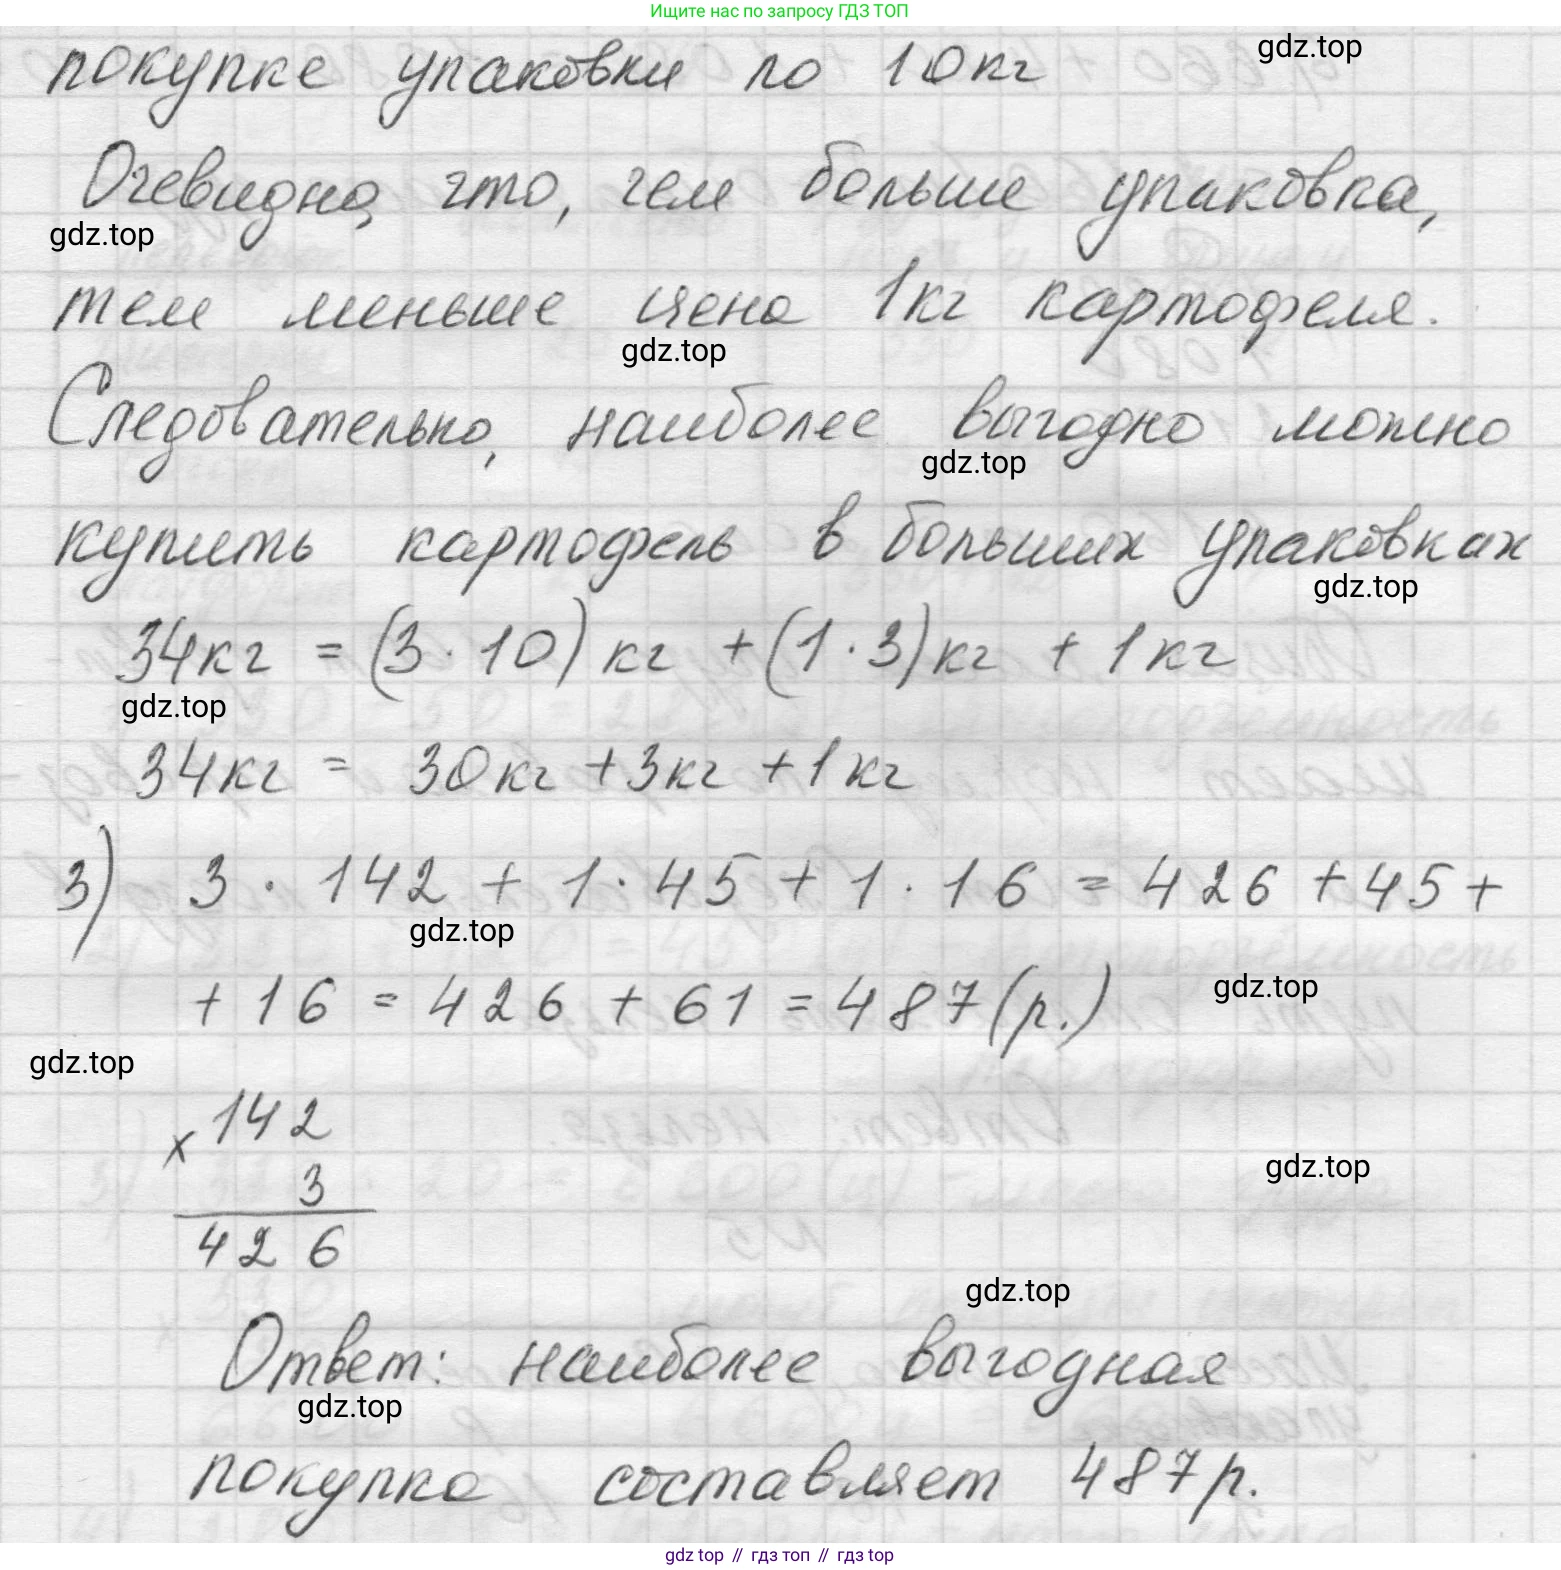 Ищите нас по запросу ГДЗ ТОП
покупке упаковки по 10 кг
gdz.top
Очевидно, что, чем больше упаковка,
gdz.top
тем меньше цена 1 кг картофеля.
gdz.top
Следовательно, наиболее выгодно можно
gdz.top
купить картофель в больших упаковках
gdz.top
34 кг = (3 · 10) кг + (1 · 3) кг + 1 кг
gdz.top
34 кг = 30 кг + 3 кг + 1 кг
3) 3 · 142 + 1 · 45 + 1 · 16 = 426 + 45 +
gdz.top
+ 16 = 426 + 61 = 487 (р.)
gdz.top
gdz.top
× 142
3
gdz.top
426
gdz.top
Ответ: наиболее выгодная
gdz.top
покупка составляет 487 р.
gdz top // гдз топ // гдз top